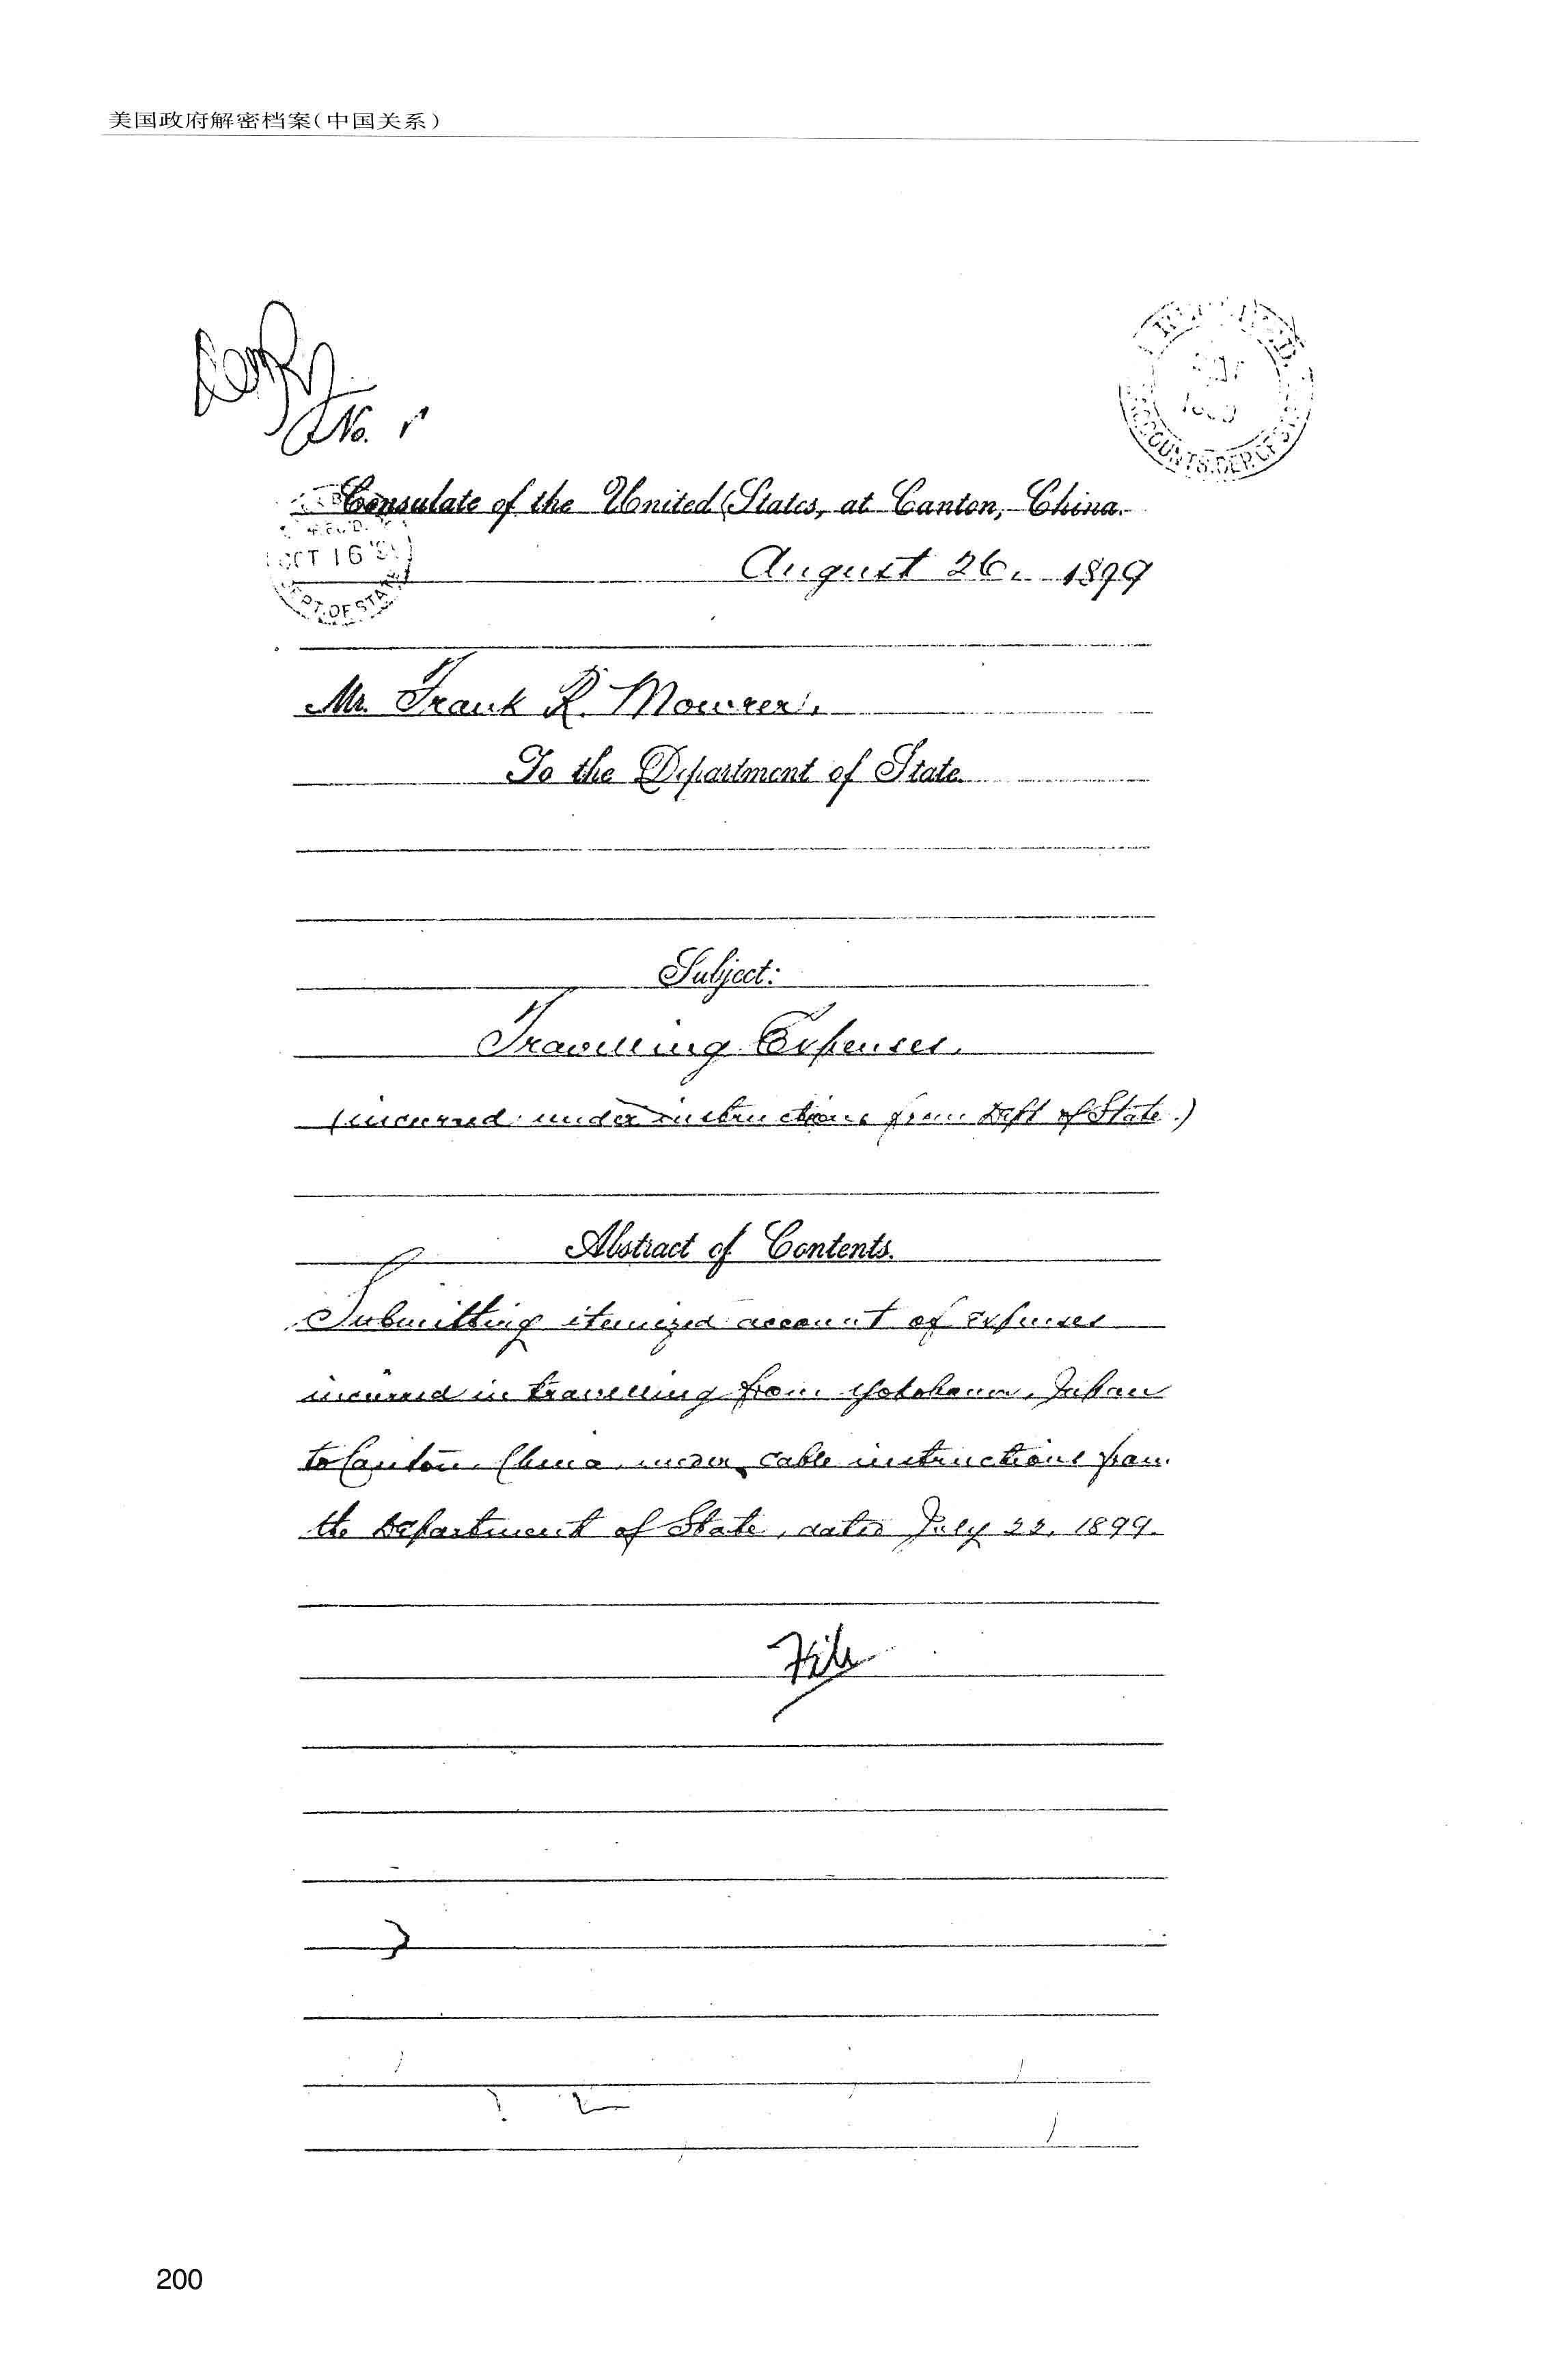 美国政府解密档案(中国关系)
No. 1
Consulate of the United States, at Canton, China.
OCT 16
DEPT. OF STATE
August 26, 1899
RECEIVED.
ACCOUNTS. DEP. OF STATE
Mr. Frank R. Mowrer,
To the Department of State.
Subject:
Travelling Expenses.
(incurred under instructions from Dept of State.)
Abstract of Contents.
Submitting itemized account of expenses
incurred in travelling from Yokohama, Japan
to Canton, China, under cable instructions from
the Department of State, dated July 22, 1899.
File
200